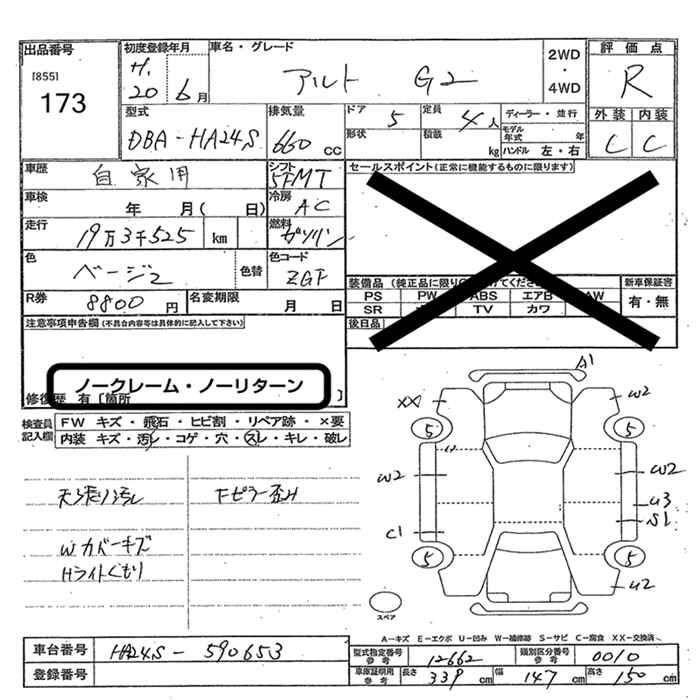 出品番号
[855]
173
初度登録年月
H.
20 6月
車名・グレード
アルト G2
2WD
・
4WD
評価点
R
型式
DBA-HA24S
排気量
660 cc
ドア 5
定員 4人
形状
積載 kg
ディーラー・並行
モデル年式 年
ハンドル 左・右
外装 内装
C C
車歴
自家用
シフト
5FMT
セールスポイント(正常に機能するものに限ります)
車検
年 月( 日)
冷房
AC
走行
19万3千525 km
燃料
ガソリン
色
ベージュ
色替
色コード
ZGF
装備品(純正品に限り けてくださ
PS PW ABS エアB AW
SR TV カワ
新車保証書
有・無
後日品
R券
8800円
名変期限
月 日
注意事項申告欄(不具合内容等は具体的に記入して下さい)
ノークレーム・ノーリターン
修復歴 有[箇所 ]
検査員
記入欄
FW キズ・飛石・ヒビ割・リペア跡・×要
内装 キズ・汚レ・コゲ・穴・スレ・キレ・破レ
天張り汚レ
Fピラー歪み
Wカバーキズ
Hライトくもり
A1
XX
W2
5
5
W2
W2
U3
S1
C1
5
5
U2
スペア
A-キズ E-エクボ U-凹み W-補修跡 S-サビ C-腐食 XX-交換済
車台番号
HA24S-590653
登録番号
型式指定番号
参考
12662
類別区分番号
参考
0010
車庫証明用
参考
長さ 339 cm
幅 147 cm
高さ 150 cm